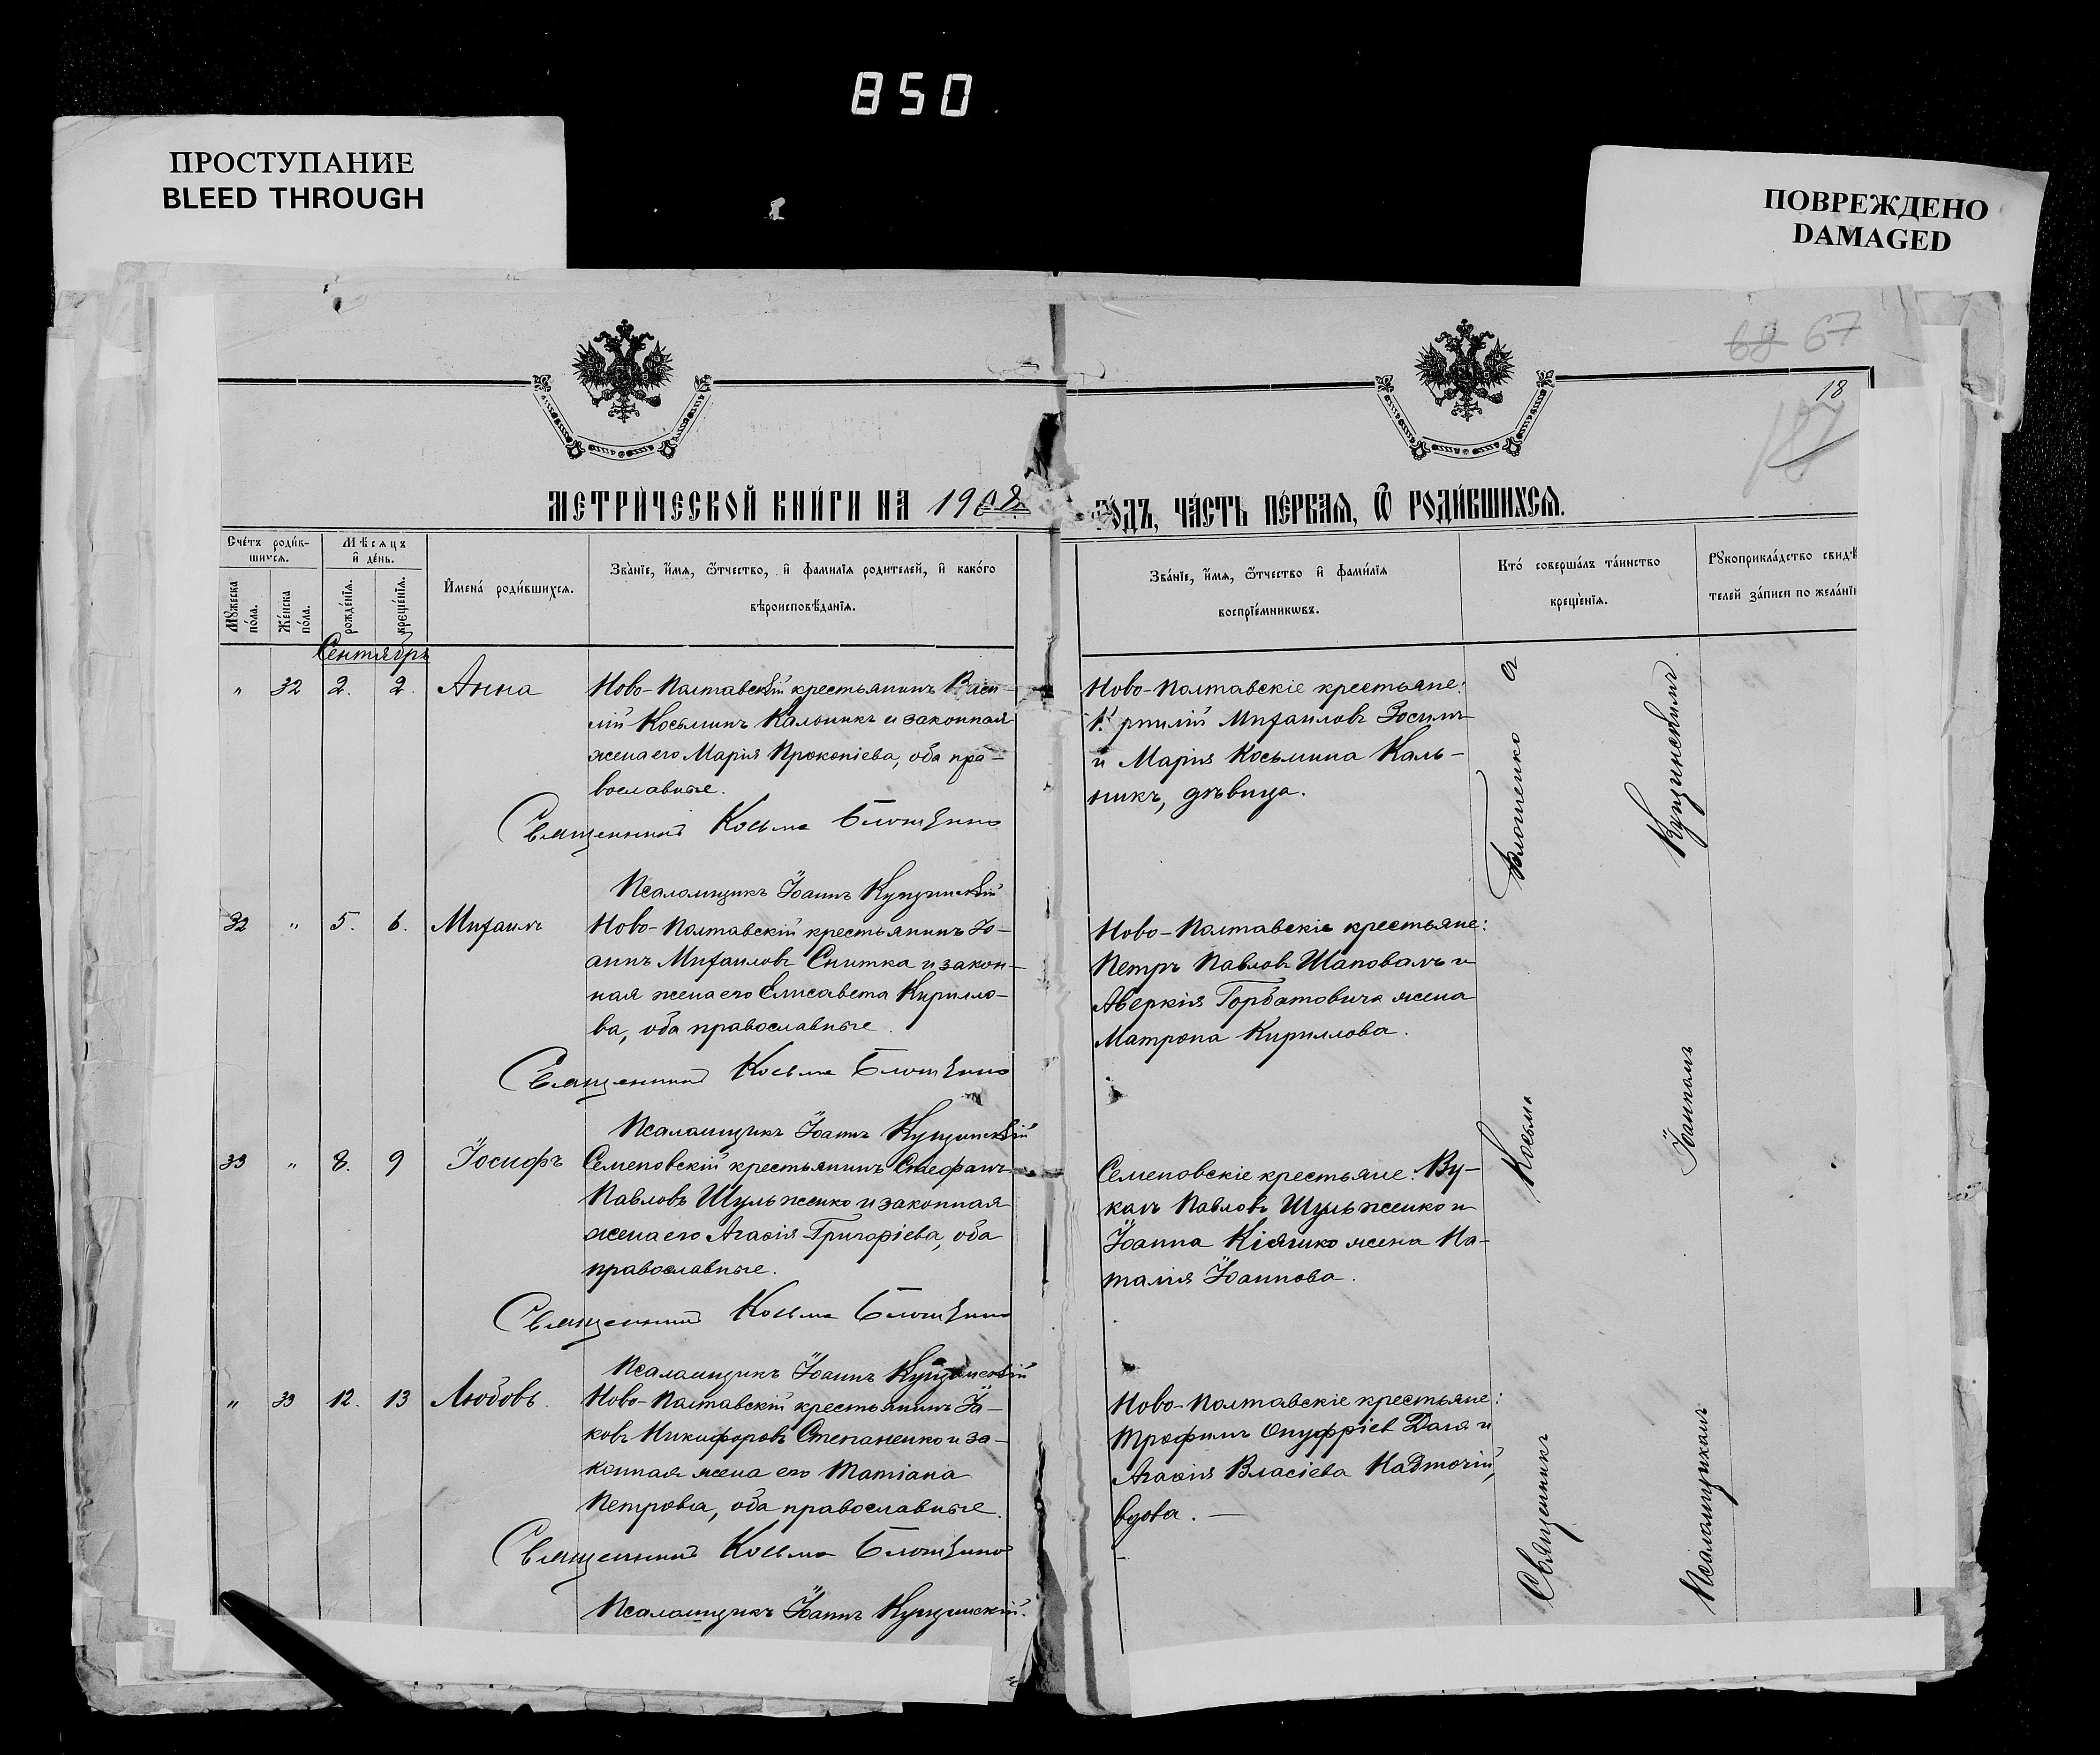 850
ПРОСТУПАНИЕ
BLEED THROUGH
ПОВРЕЖДЕНО
DAMAGED
68 67
18
МЕТРИ́ЧЕСКОЙ КНИ́ГИ НА 1908
ГОДЪ, ЧА́СТЬ ПЕ́РВАѦ, Ѿ РОДИ́ВШИХСѦ.
Сче́тъ роди́в-
шихсѧ.
Мѣ́сѧцъ
и҆ де́нь.
Мꙋ́жеска
по́ла.
Же́нска
по́ла.
рожде́нїѧ.
креще́нїѧ.
И҆мена̀ роди́вшихсѧ.
Зва́нїе, и҆́мѧ, ѻ҆́тчество, и҆ фами́лїѧ роди́телей, и҆ како́го
вѣроисповѣ́данїѧ.
Зва́нїе, и҆́мѧ, ѻ҆́тчество и҆ фами́лїѧ
воспрїе́мникѡвъ.
Кто́ соверша́лъ та́инство
креще́нїѧ.
Рꙋкоприкла́дство свидѣ́
телей за́писи по жела́нї
Сентябрь
" 32 2. 2. Анна
Ново-Полтавскій крестьянинъ Васи-
лій Косьминъ Кальникъ и законная
жена его Марія Прокопіева, оба пра-
вославные.
Священникъ Косьма Блошенко
Псаломщикъ Іоаннъ Кущинскій
Ново-Полтавскіе крестьяне:
Михаиловъ Зосимъ
и Марія Косьмина Каль-
никъ, дѣвица.
32 " 5. 6. Михаилъ
Ново-Полтавскій крестьянинъ Іо-
аннъ Михаиловъ Снитка и закон-
ная жена его Елисавета Кирилло-
ва, оба православные.
Священникъ Косьма Блошенко
Псаломщикъ Іоаннъ Кущинскій
Ново-Полтавскіе крестьяне:
Петръ Павловъ Шаповалъ и
Аверкія Горбатовича жена
Матрона Кириллова.
33 " 8. 9 Іосифъ
Семеновскій крестьянинъ Стефанъ
Павловъ Шульженко и законная
жена его Агаѳія Григоріева, оба
православные.
Священникъ Косьма Блошенко
Псаломщикъ Іоаннъ Кущинскій
Семеновскіе крестьяне: Ву-
калъ Павловъ Шульженко и
Іоанна Кіяшко жена На-
талія Іоаннова.
" 33 12. 13 Любовь.
Ново-Полтавскій крестьянинъ Іа-
ковъ Никифоровъ Степаненко и за-
конная жена его Татіана
Петрова, оба православные.
Священникъ Косьма Блошенко
Псаломщикъ Іоаннъ Кущинскій.
Ново-Полтавскіе крестьяне:
Трофимъ Онуфріев Даля и
Агаѳія Власіева Надточій,
вдова. —
Священникъ Косьма Блошенко съ
Псаломщикомъ Іоанномъ Кущинскимъ.